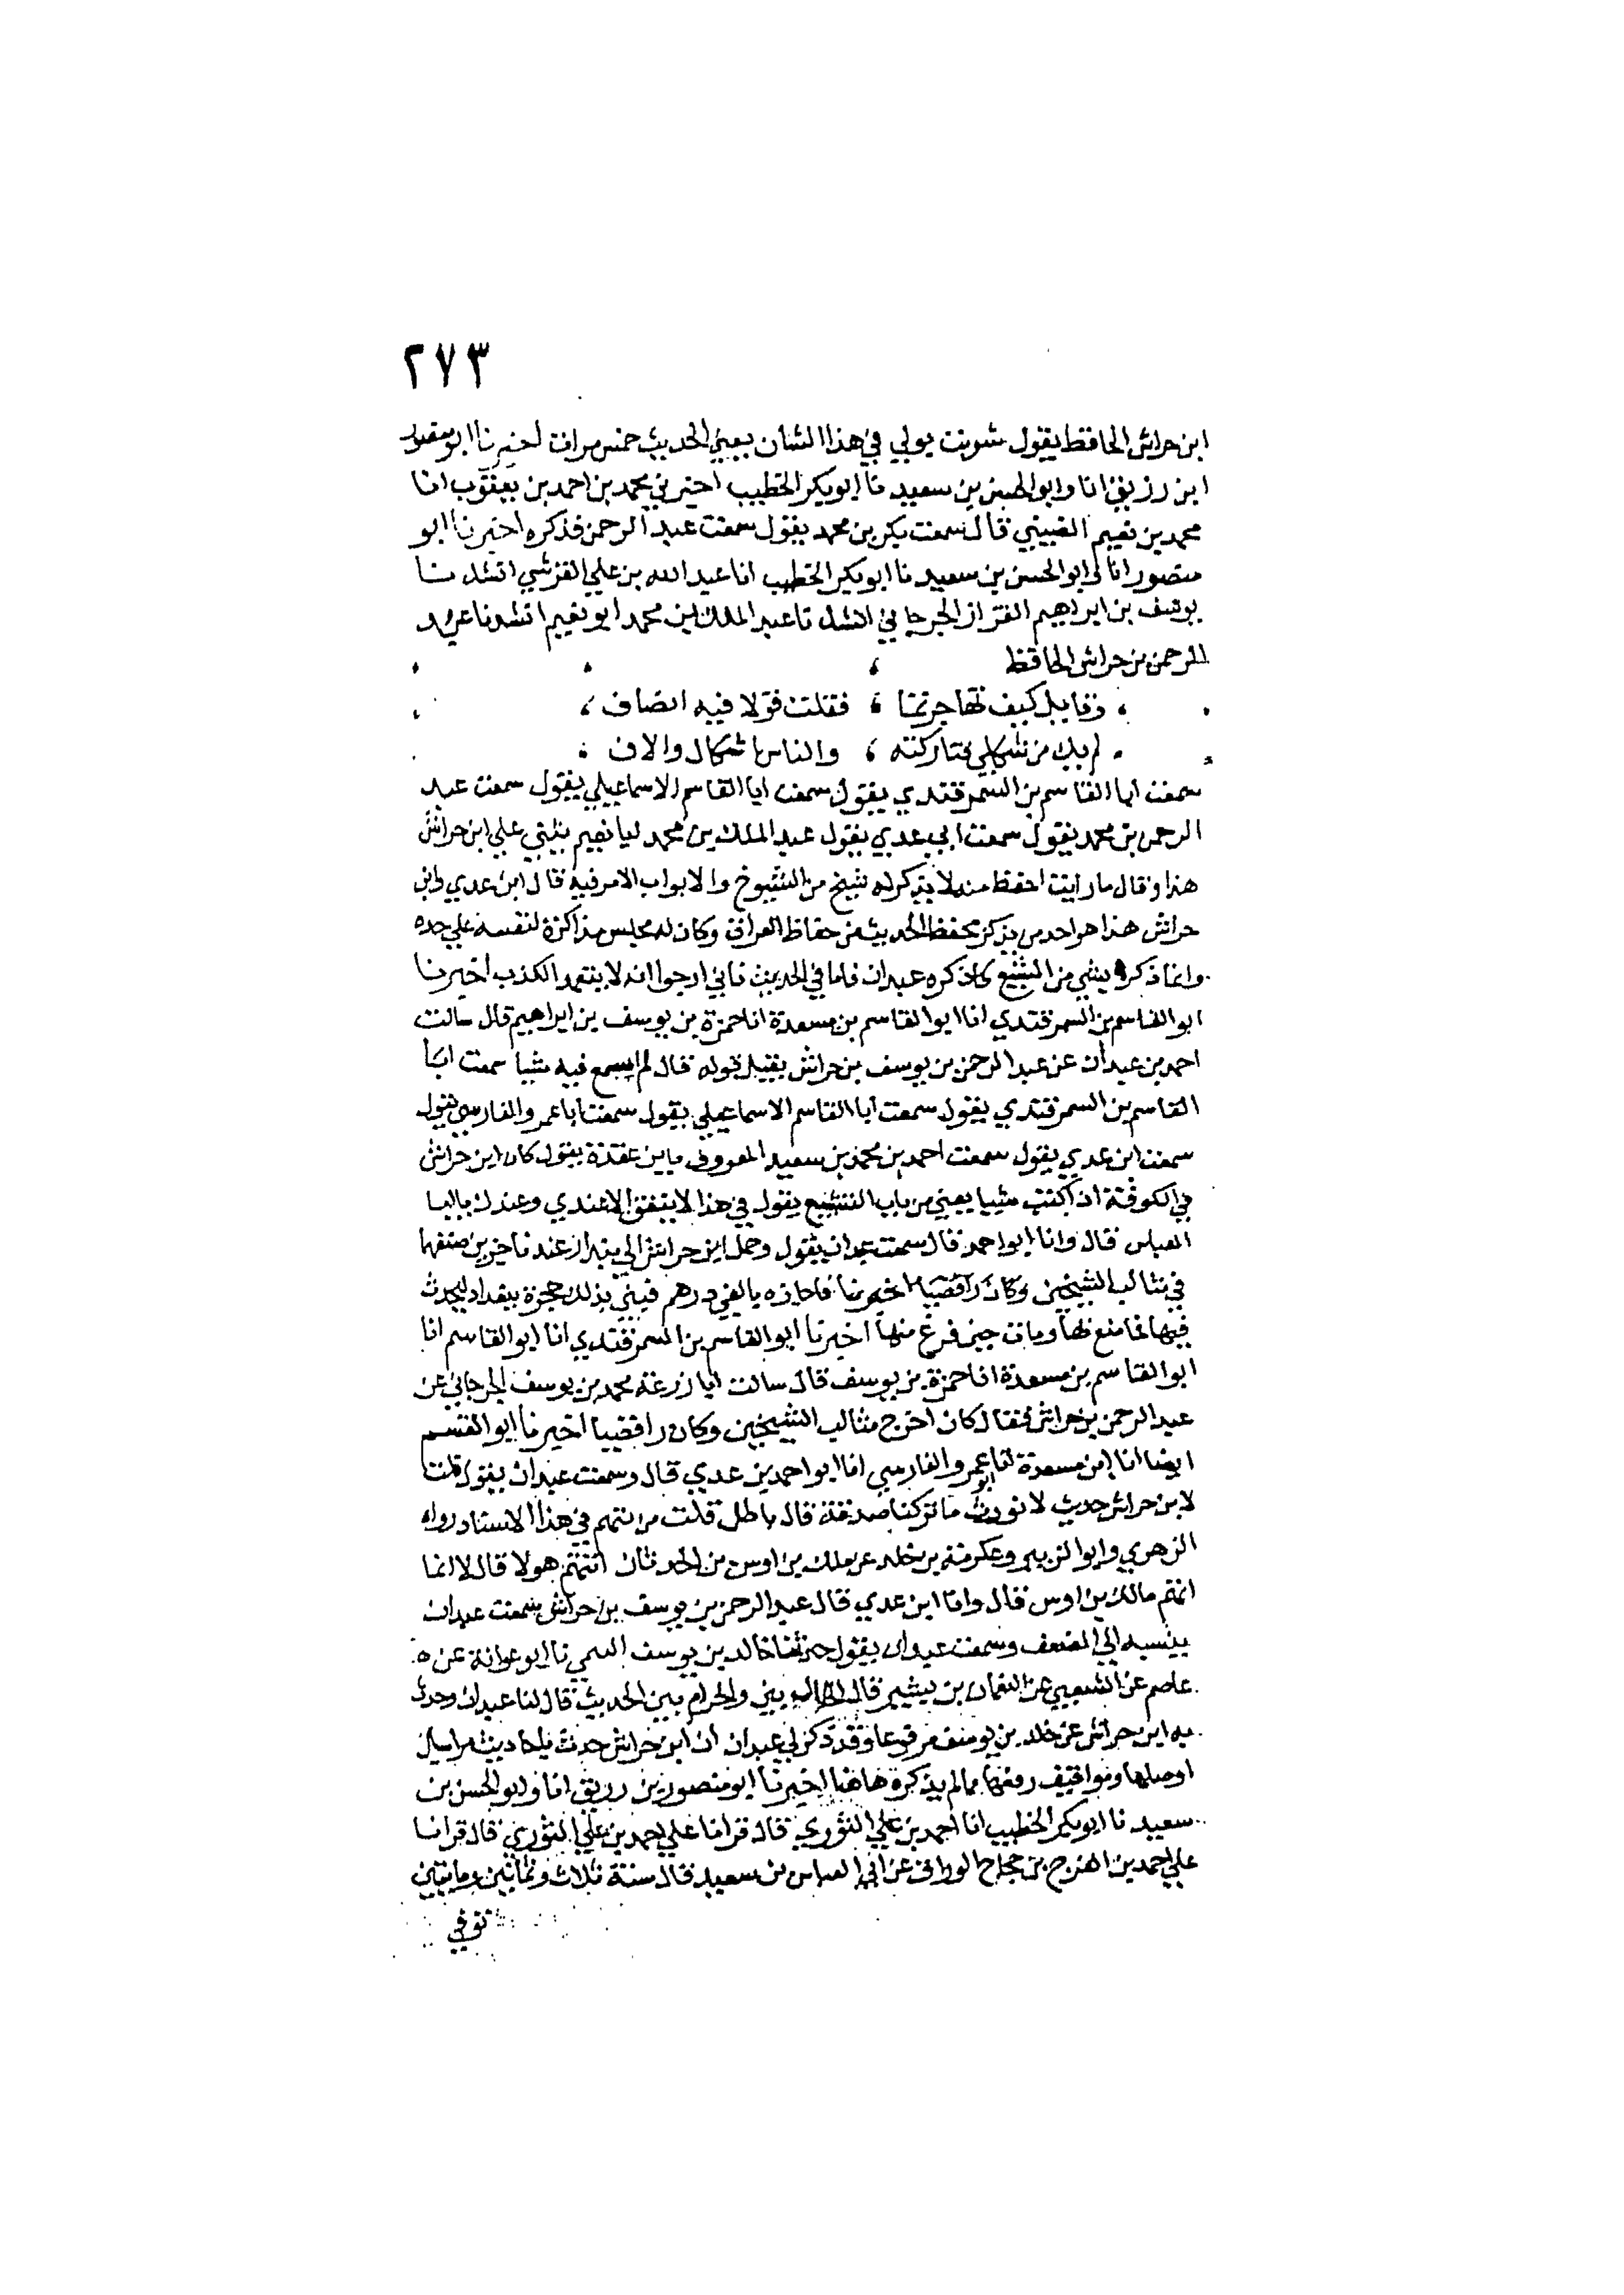 ٢٧٣
ابن حراش الحافظ يقول شربت بولي في هذا الشان يعني الحديث خمس مرات اخبرنا ابو منصور
ابن رزيق انا وابو الحسن بن سعيد نا ابو بكر الخطيب اخبرني محمد بن احمد بن يعقوب انا
محمد بن نعيم الضبيني قال سمعت بكر بن محمد يقول سمعت عبد الرحمن فذكره اخبرنا ابو
منصور انا وابو الحسن بن سعيد نا ابو بكر الخطيب انا عبد الله بن علي القرشي انشدنا
يوسف بن ابراهيم القزاز الجرجاني انشدنا عبد الملك بن محمد ابو نعيم انشدنا عبد
الرحمن بن حراش الحافظ
وقايل كيف تهاجرتما فقلت قولا فيه انصاف
لم يك من شكلي فتاركته والناس اشكال والاف
سمعت ابا القاسم بن السمرقندي يقول سمعت ابا القاسم الاسماعيلي يقول سمعت عبد
الرحمن بن محمد يقول سمعت ابن عدي يقول عبد الملك بن محمد ابا نعيم يثني علي ابن حراش
هذا وقال ما رايت احفظ منه لا يذكر له شيخ من الشيوخ والابواب الا مر فيه قال ابن عدي وابن
حراش هذا هو احد من يذكر بحفظ الحديث من حفاظ العراق وكان له مجلس مذاكرة لنفسه علي حده
وانما ذكر بشي من التشيع كما ذكره عبدان فاما في الحديث فاني ارجوا انه لا يتعمد الكذب اخبرنا
ابو القاسم بن السمرقندي انا ابو القاسم بن مسعدة انا حمزة بن يوسف بن ابراهيم قال سالت
احمد بن عبدان عن عبد الرحمن بن يوسف بن حراش يقبل قوله قال لم اسمع فيه شيا سمعت ابا
القاسم بن السمرقندي يقول سمعت ابا القاسم الاسماعيلي يقول سمعت ابا عمرو الفارسي يقول
سمعت ابن عدي يقول سمعت احمد بن محمد بن سعيد المعروف بابن عقدة يقول كان ابن حراش
في الكوفة اذا كتب شيا يعني من باب التشيع يقول في هذا لا ينفق الا عندي وعندك يا ابا
العباس قال وانا ابو احمد قال سمعت عبدان يقول وحمل ابن حراش الي بندار عندنا جزين صنفهما
في مثالب الشيخين وكان رافضيا اخبرنا فاجازه بالفي درهم فبني بذلك حجرة ببغداد ليحدث
فيها فما متع بها ومات حين فرغ منها اخبرنا ابو القاسم بن السمرقندي انا ابو القاسم انا
ابو القاسم بن مسعدة انا حمزة بن يوسف قال سالت ابا زرعة محمد بن يوسف الجرجاني عن
عبد الرحمن بن حراش فقال كان اخرج مثالب الشيخين وكان رافضيا اخبرنا ابو القسم
ايضا انا ابن مسعدة انا ابو عمرو الفارسي انا ابو احمد بن عدي قال وسمعت عبدان يقول قلت
لابن حراش حديث لا نورث ما تركنا صدقة قال باطل قلت من تتهم في هذا الاسناد رواه
الزهري وابو الزبير وعكرمة بن خلد عن ملك بن اوس بن الحدثان اتتهم هولا قال لا انما
اتهم مالك بن اوس قال وانا ابن عدي قال عبد الرحمن بن يوسف بن حراش سمعت عبدان
ينسبه الي الضعف وسمعت عبدان يقول حدثنا خالد بن يوسف السمتي نا ابو عوانة عن
عاصم عن الشعبي عن النعمان بن بشير قال الحلال بين والحرام بين الحديث قال لنا عبدان وحدث
به ابن حراش عن خلد بن يوسف مرفوعا وقد ذكر لي عبدان ان ابن حراش حدث باحاديث مراسيل
اوصلها ومواقيف رفعها مما لم يذكره هاهنا اخبرنا ابو منصور بن رزيق انا وابو الحسن بن
سعيد نا ابو بكر الخطيب انا احمد بن علي التوري قال قرانا علي احمد بن علي التوري قال قرانا
علي احمد بن الفرج بن حجاج الوراق عن ابي العباس بن سعيد قال سنة ثلاث وثمانين ومايتين
توفي